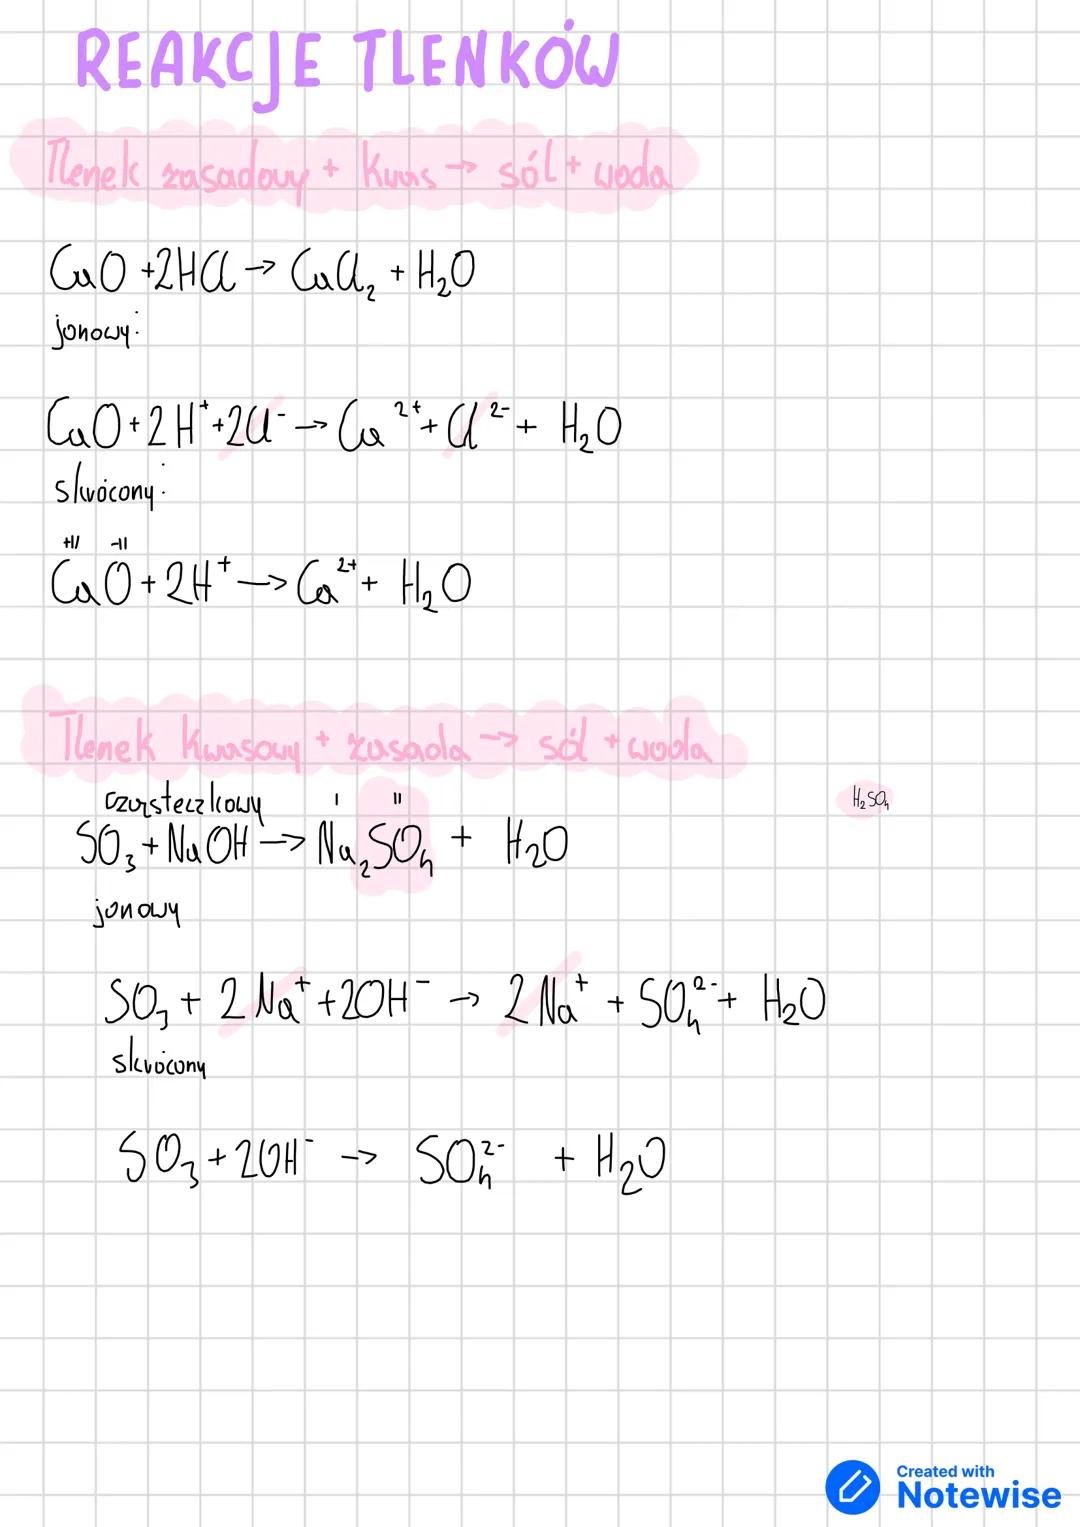 REAKCJE TLENKÓW
Tlenek zasadowy + Kwas → sól + woda
CaO + 2HCl → CaCl₂ + H₂O
jonowy:
CaO + 2H⁺ + 2Cl⁻ → Ca²⁺ + Cl²⁻ + H₂O
skrócony:
+II -II
CaO + 2H⁺ → Ca²⁺ + H₂O
Tlenek kwasowy + zasada → sól + woda
cząsteczkowy I II
H₂SO₄
SO₃ + NaOH → Na₂SO₄ + H₂O
jonowy
SO₃ + 2Na⁺ + 2OH⁻ → 2Na⁺ + SO₄²⁻ + H₂O
skrócony
SO₃ + 2OH⁻ → SO₄²⁻ + H₂O
Created with
Notewise